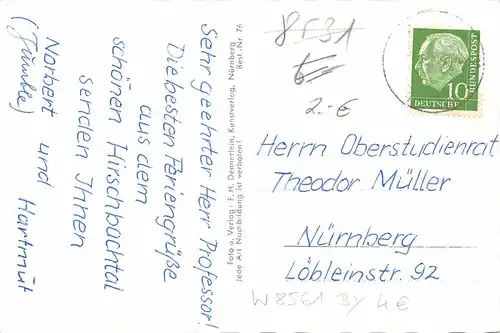 Sehr geehrter Herr Professor!
Die besten Feriengrüße
aus dem
schönen Hirschbachtal
senden Ihnen
Norbert und Hartmut
Foto u. Verlag: F. H. Oemerlein, Kunstverlag, Nürnberg
Jede Art Nachbildung ist verboten! Best.-Nr. 76
8531
2.-€
DEUTSCHE
BUNDESPOST
10
Herrn Oberstudienrat
Theodor Müller
Nürnberg
Löbleinstr. 92
W8561 BY 4€